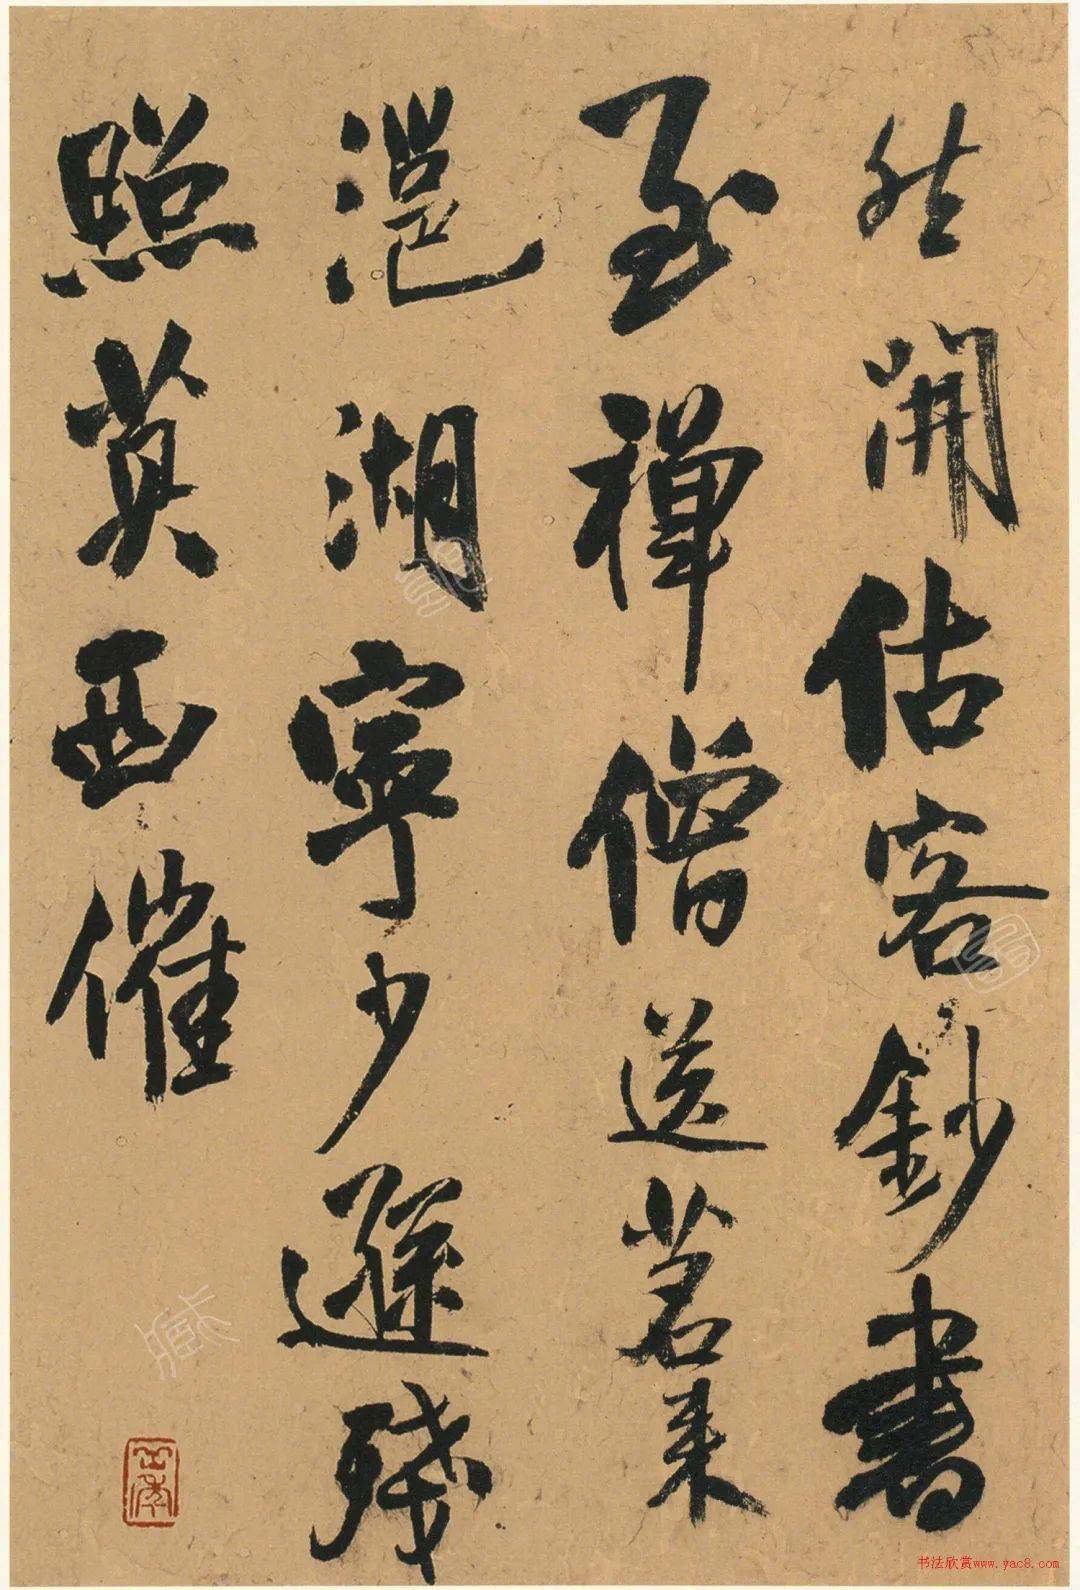 然開估客鈔書
至禪僧送茗來
㴩湖寧少遜殘
照莫西催
书法欣赏www.yac8.com